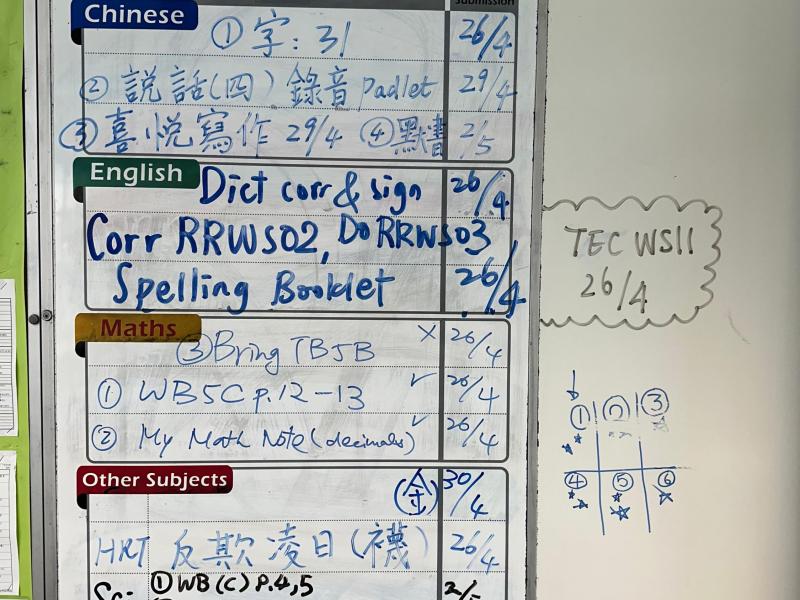 Submission
Chinese
① 字: 31 26/4
② 說話(四) 錄音 Padlet 29/4
③ 喜悅寫作 29/4 ④ 默書 2/5
English
Dict corr & sign 26/4
Corr RRWS02, Do RRWS03
Spelling Booklet 26/4
TEC WS11
26/4
Maths
③ Bring TB5B × 26/4
① WB5C p.12-13 ✓ 26/4
② My Math Note (decimals) ✓ 26/4
① ② ③
④ ⑤ ⑥
Other Subjects
30/4
HRT 反欺凌日(襪) 26/4
① WB (C) P.4,5